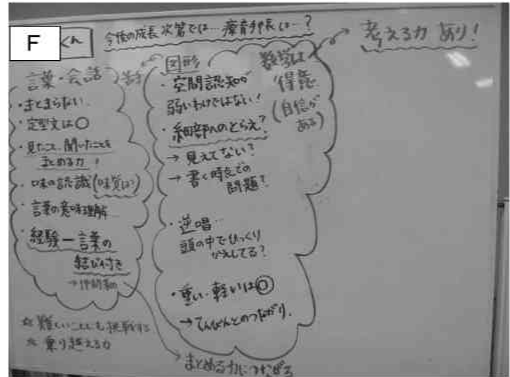 F くん
今後の成長次第では… 療育手帳は…?
考える力 あり!
言葉・会話
・まとまらない
・定型文は○
・見たこと、聞いたことを
まとめる力!
・味の認識(味覚は)
・言葉の意味理解
・経験ー言葉の
結び付き
☆難しいことにも挑戦する
☆乗り越える力
図形
・空間認知が
弱いわけではない!
・細部へのとらえ?
→見えてない?
→書く時点での
問題?
・逆唱…
頭の中でひっくり
かえしてる?
・重い・軽いは◎
→てんびんとのつながり.
数学は
得意
(自信が
ある)
まとめる力につなげる